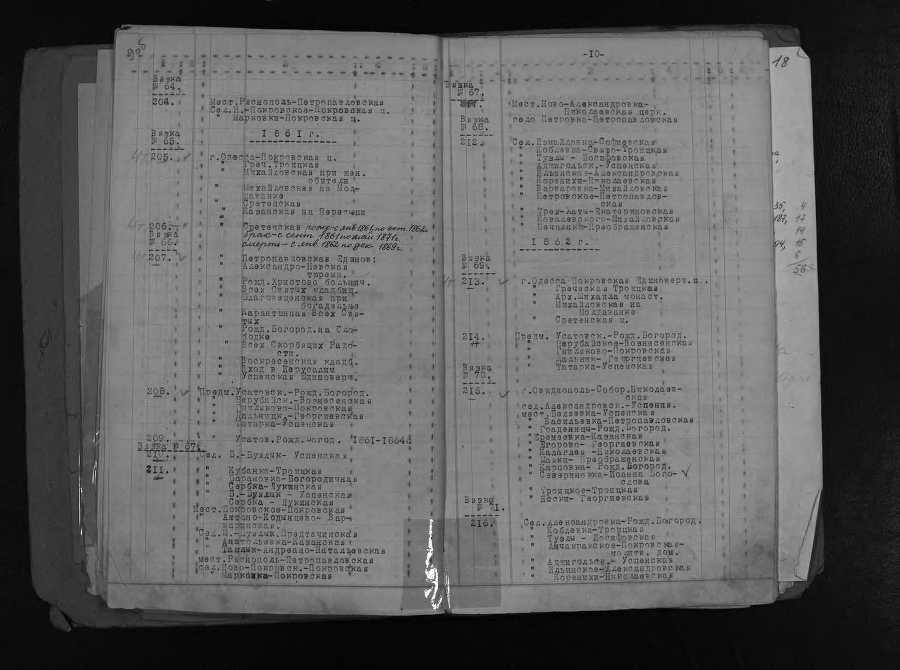 Вязка
№ 64.
204. Мест.Рясnополь-Петропавловская
Сел.Н.-Покровское-Покровская ц.
" Марковка-Покровская ц.
1861 г.
Вязка
№ 65.
205. г.Одесса-Покровская ц.
" Греч.Троицкая
" Михайловская при жен.
обители
" Михайловская на Мол-
даванке
" Сретенская
" Казанская на Пересыпи
206. " Сретенская
брак-с сент 1861 по май 1871г.
смерть-с янв 1862 по дек 1869г.
Вязка
№ 66.
207. " Петропавловская Единов:
" Александро-Невская
тюремн.
" Рожд.Христово больнич.
" Всех Святых кладбищ.
" Благовещенская при
богадельне
" Карантинная Всех Свя-
тых
" Рожд.Богород.на Сло-
бодке
" Всех Скорбящих Радо-
сти.
" Воскресенская кладб.
" Вход в Иерусалим
" Успенская Единоверч.
208. Предм.Усатовск.-Рожд.Богород.
" Нерубайск.-Вознесенская
" Гниляково-Покровская
" Дальницк.-Георгиевская
" Татарка-Успенская
209. " Усатов.Рожд.Богод. 1861-1864г.
Вязка № 67.
210. Сел. Б.-Буялык- Успенская
211. " Кубанка-Троицкая
" Барановка-Богородичная
" Сербка-Лукинская
" Б.-Буялык - Успенская
" Сербка - Лукинская
Мест.Покровское-Покровская
" Антоно-Кодынцево- Вар-
варинская.
Сел.М.-Буялык.Предтечинская
" Анатольевка-Казанская
" Ташлык-Андреево-Натальевская
мест.Рясnополь-Петропавловская
Сел.Ново-Покровск.-Покровская
" Марковка-Покровская
-10-
Вязка
№ 67.
Мест.Ново-Александровка-
Николаевская церк.
село Петровка-Петропавловская
Вязка
№ 68.
212. Сел.Измайловка-Софиевская
" Коблевка-Свято-Троицкая
" Тузлы - Иосифовская
" Аджигольск.-Успенская
" Ильинское-Александровская
" Корениха-Николаевская
" Варваровка-Михайловская
" Петровское-Петропавлов-
ская
" Трех-Хаты-Екатериновская
" Ковалевского-Михайловская
" Печаловка-Преображенская
1862 г.
Вязка
№ 69.
213. г.Одесса-Покровская Единоверч.ц.
" Греческая Троицкая
" Арх.Михаила монаст.
" Михайловская на
Молдаванке
" Сретенская ц.
214. Предм. Усатовск.-Рожд.Богород.
" Нерубайское-Вознесенская
" Гниляково-Покровская
" Дальник-Георгиевская
" Татарка-Успенская
Вязка
№ 70.
215. г.Овидиополь-Собор.Николаев-
ская
сел.Александровск.-Успенск.
мест.Беляевка-Успенская
" Васильевка-Петропавловская
" Граденицы-Рожд.Богород.
" Ефремовка-Казанская
" Егорово- Георгиевская
" Калаглея -Николаевская
" Маяки- Преображенская
" Карповка- Рожд.Богород.
" Севериновка-Иоанна Бого-
слова
" Троицкое-Троицкая
" Ясски- Георгиевская
Вязка
№ 71.
216. Сел.Александровка-Рожд.Богород.
" Коблевка-Троицкая
" Тузлы - Иосифовская
" Анчакракское-Покровская-
молитв. дом.
" Аджигольск.- Успенская
" Ильинское-Александровская
" Корениха-Николаевская
18